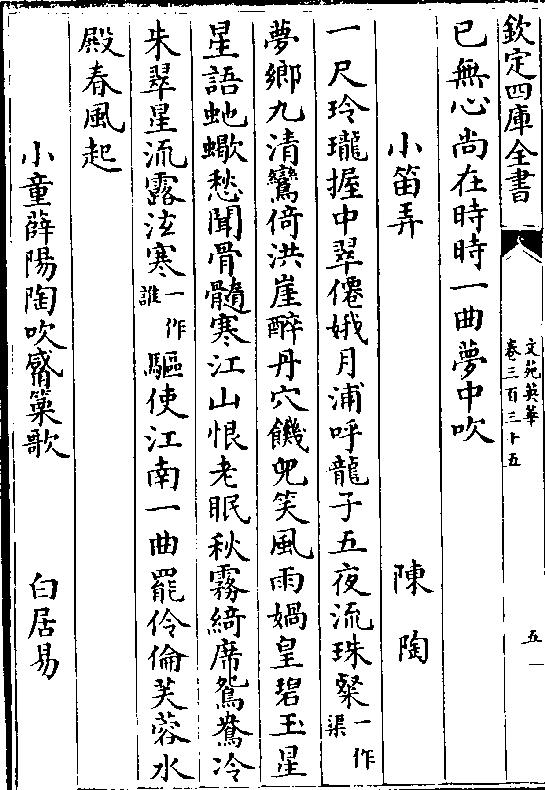 欽定四庫全書
文苑英華
卷三百三十五
五
已無心尚在時時一曲夢中吹
小笛弄 陳陶
一尺玲瓏握中翠僊娥月浦呼龍子五夜流珠粲一作渠
夢鄉九清鸞倚洪崖醉丹穴饑兒笑風雨媧皇碧玉星
星語虵蠍愁聞骨髓寒江山恨老眠秋霧綺席鴛鴦冷
朱翠星流露泫寒一作誰驅使江南一曲罷伶倫芙蓉水
殿春風起
小童薛陽陶吹觱篥歌 白居易